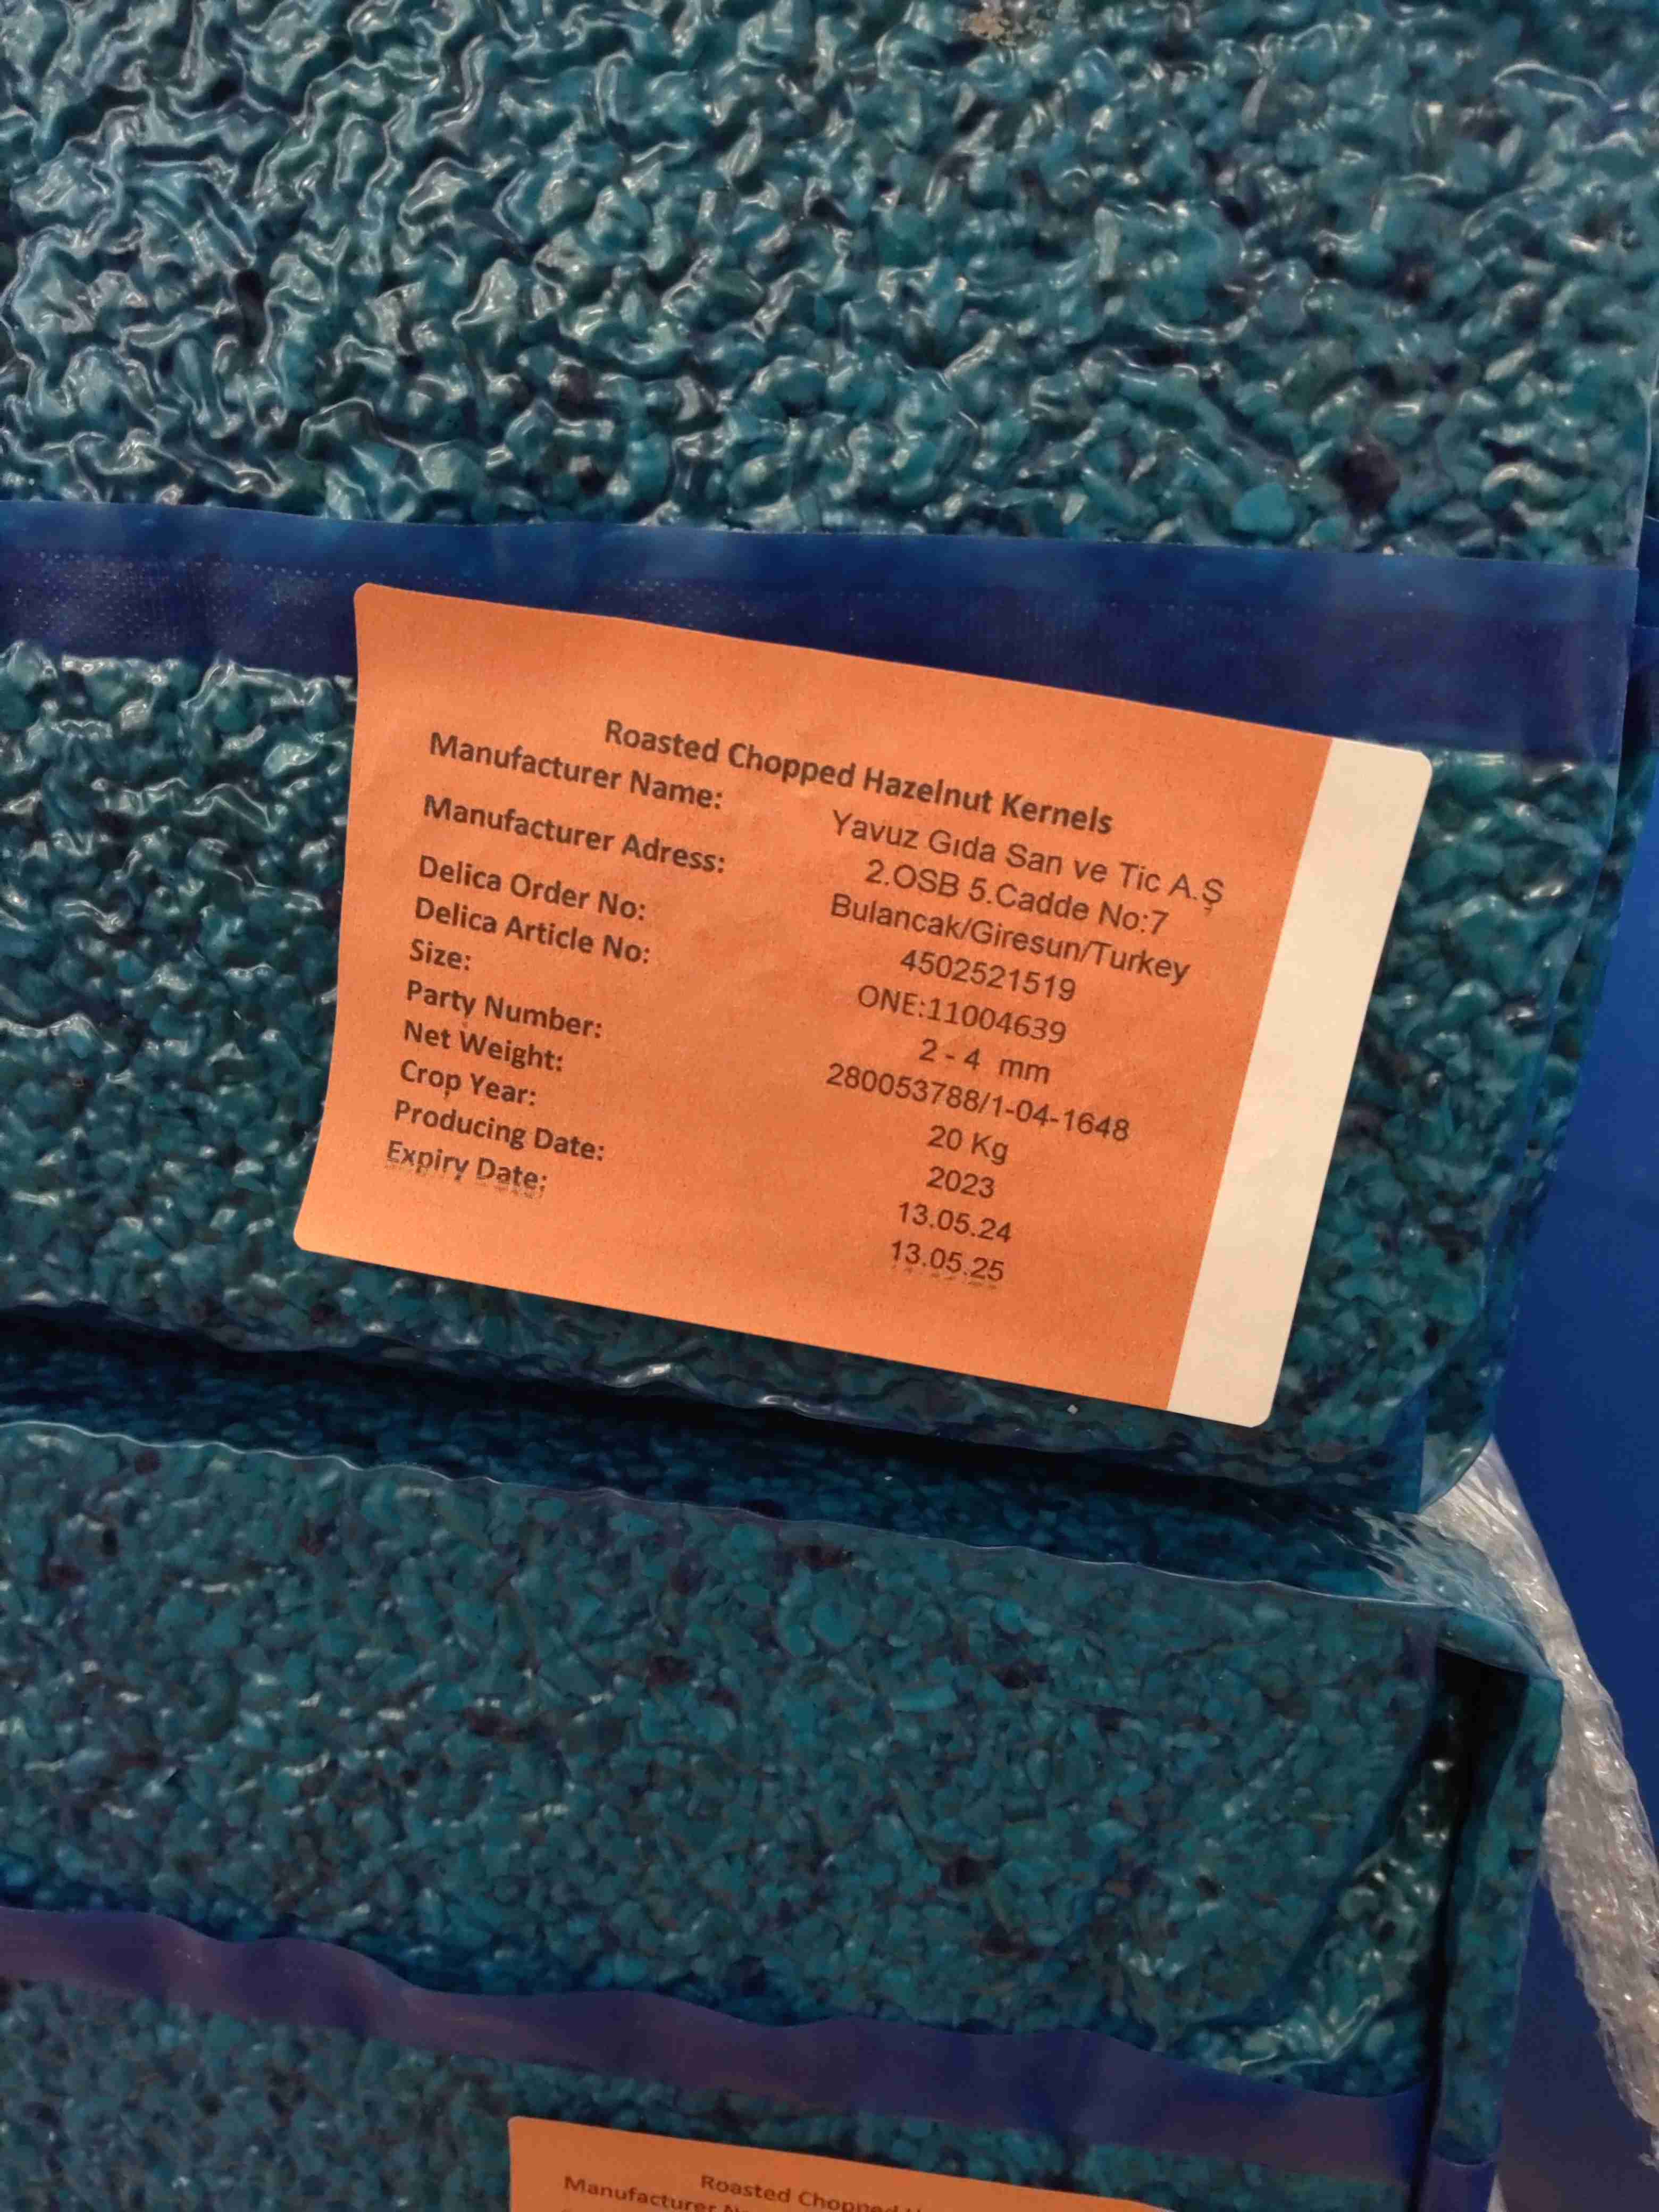 Roasted Chopped Hazelnut Kernels
Manufacturer Name: Yavuz Gıda San ve Tic A.Ş
Manufacturer Adress: 2.OSB 5.Cadde No:7
Bulancak/Giresun/Turkey
Delica Order No: 4502521519
Delica Article No: ONE:11004639
Size: 2 - 4 mm
Party Number: 280053788/1-04-1648
Net Weight: 20 Kg
Crop Year: 2023
Producing Date: 13.05.24
Expiry Date: 13.05.25
Roasted Chopped
Manufacturer